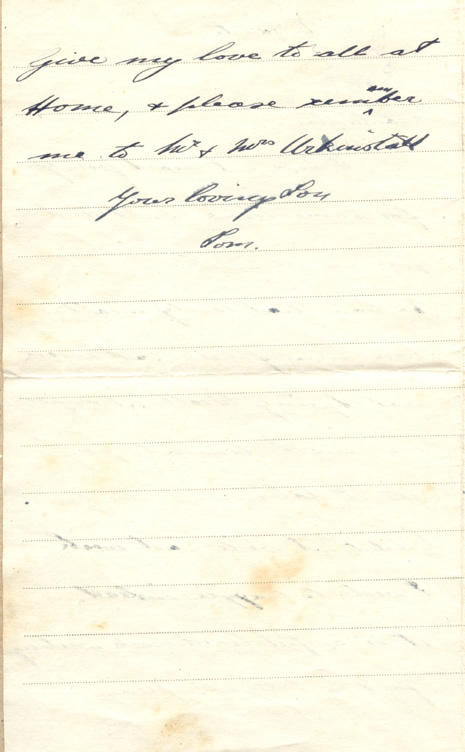 Give my love to all at
Home, & please remember
me to Mr & Mrs
Your loving Son
Tom.